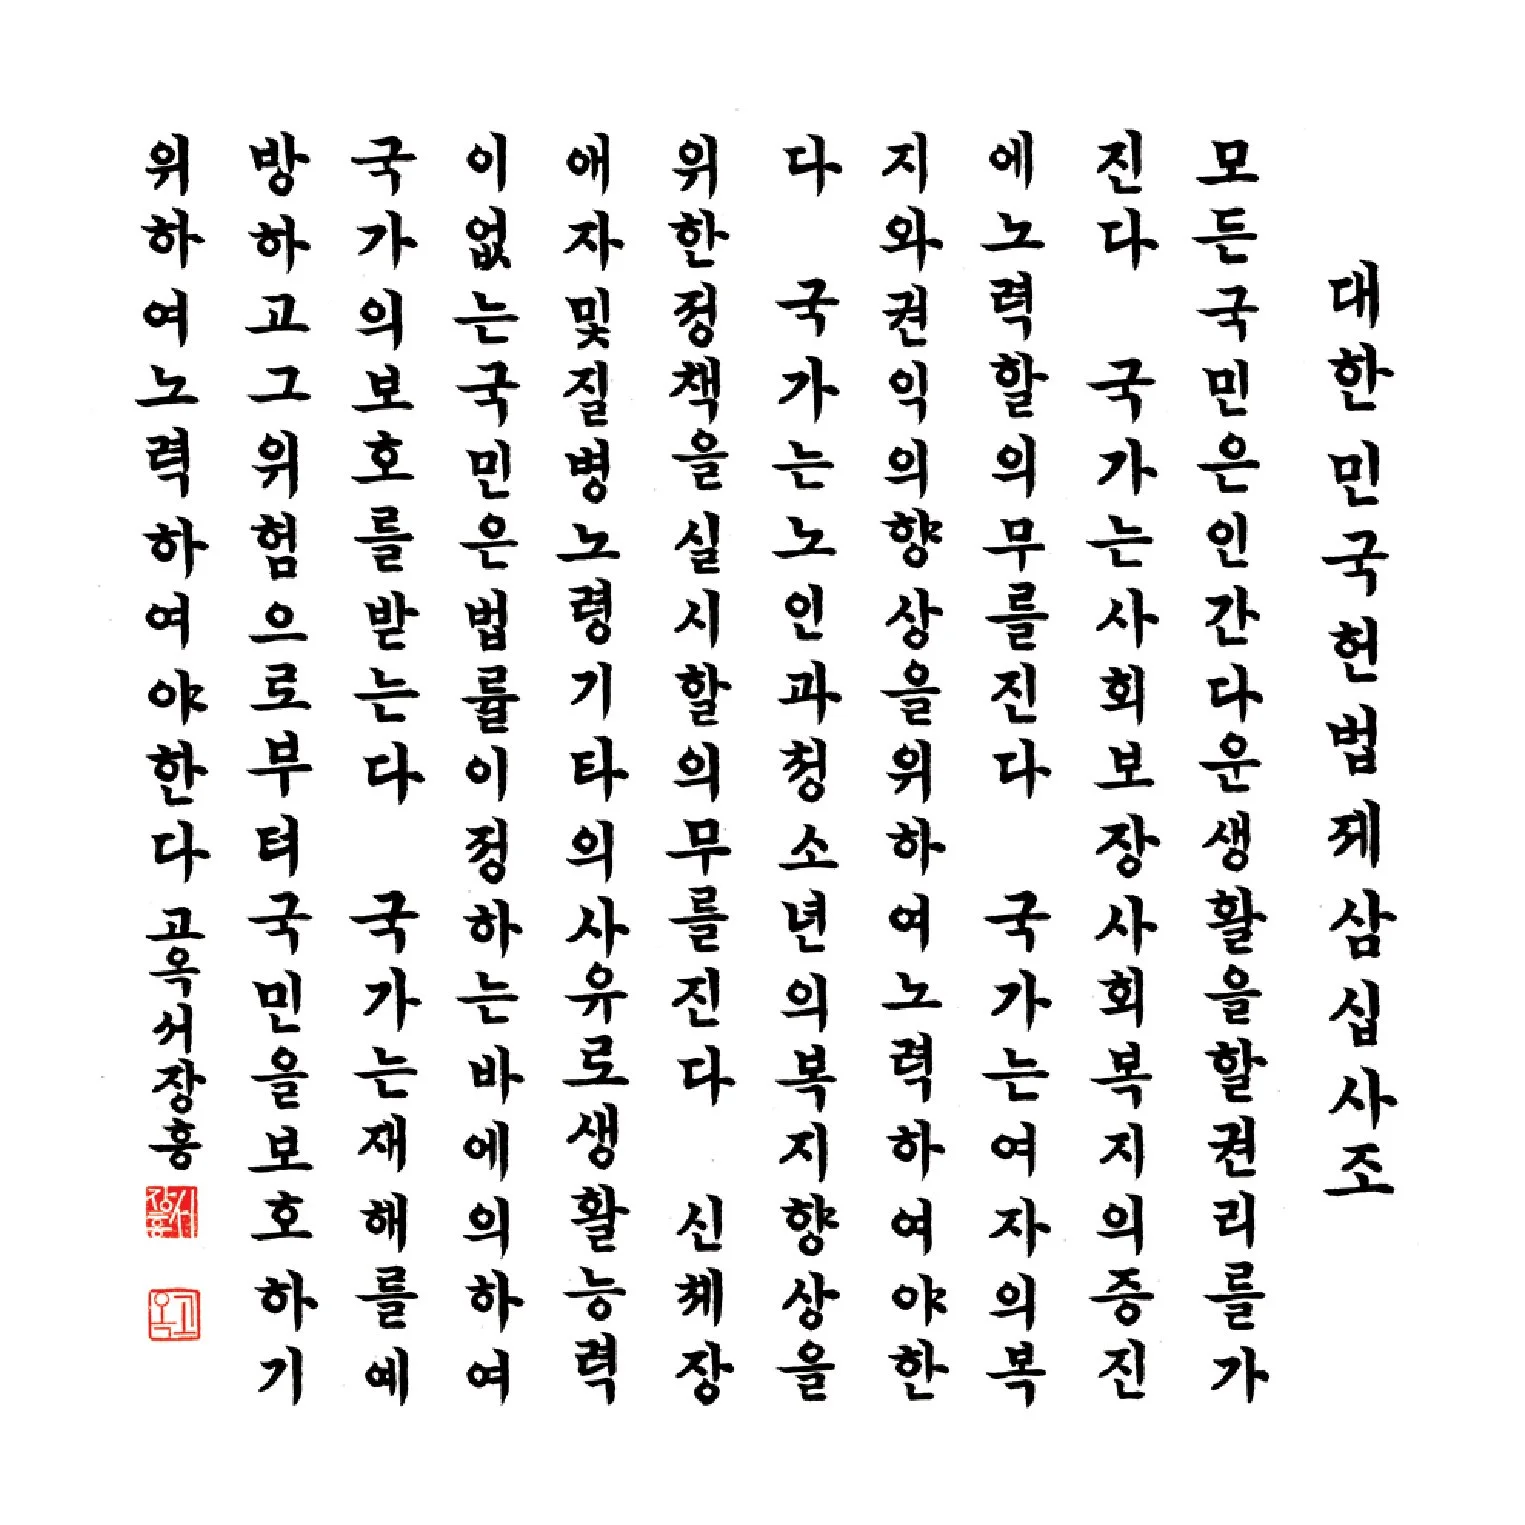 대한민국헌법제삼십사조
모든국민은인간다운생활을할권리를가
진다 국가는사회보장사회복지의증진
에노력할의무를진다 국가는여자의복
지와권익의향상을위하여노력하여야한
다 국가는노인과청소년의복지향상을
위한정책을실시할의무를진다 신체장
애자및질병노령기타의사유로생활능력
이없는국민은법률이정하는바에의하여
국가의보호를받는다 국가는재해를예
방하고그위험으로부터국민을보호하기
위하여노력하여야한다 고옥서장흥